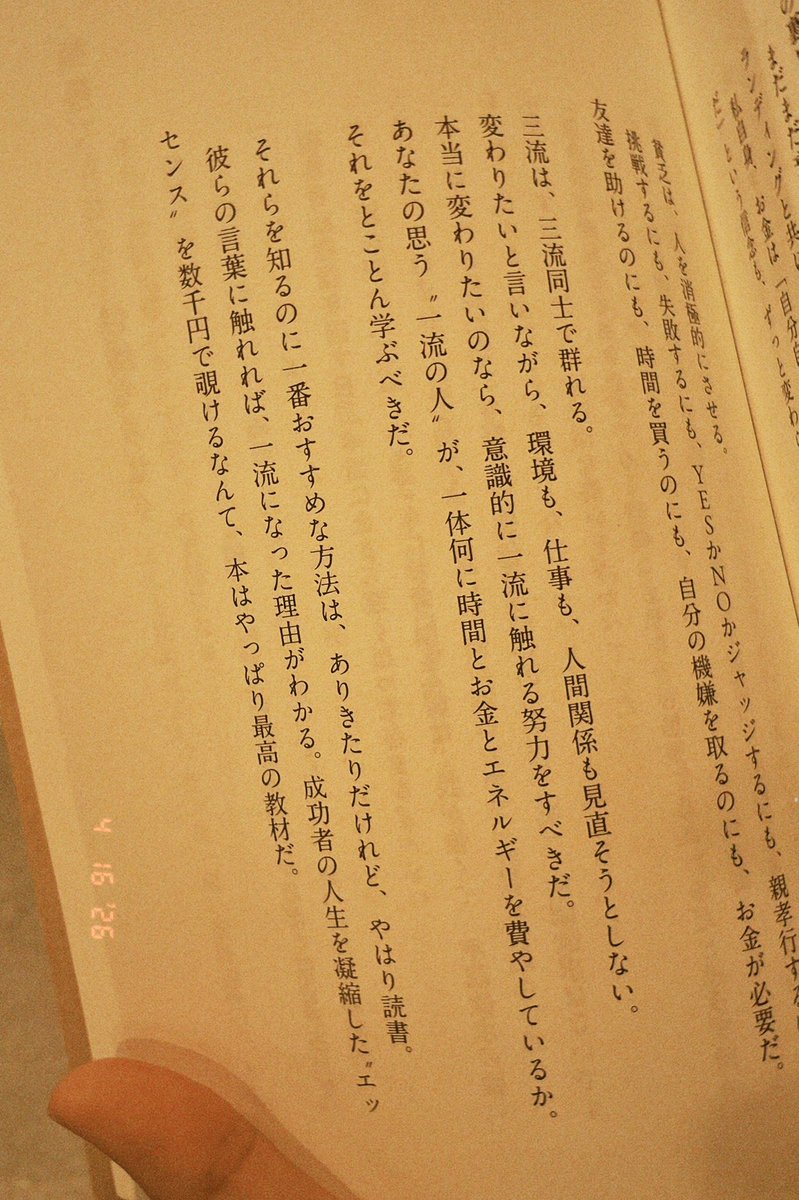 まだまだ
ンディングと共に
お金は「自分自
という信念も、ずっと変わ
貧乏は、人を消極的にさせる。
挑戦するにも、失敗するにも、YESかNOかジャッジするにも、親孝行するに
友達を助けるのにも、時間を買うのにも、自分の機嫌を取るのにも、お金が必要だ。
三流は、三流同士で群れる。
変わりたいと言いながら、環境も、仕事も、人間関係も見直そうとしない。
本当に変わりたいのなら、意識的に一流に触れる努力をすべきだ。
あなたの思う〝一流の人〟が、一体何に時間とお金とエネルギーを費やしているか。
それをとことん学ぶべきだ。
それらを知るのに一番おすすめな方法は、ありきたりだけれど、やはり読書。
彼らの言葉に触れれば、一流になった理由がわかる。成功者の人生を凝縮した〝エッ
センス〟を数千円で覗けるなんて、本はやっぱり最高の教材だ。
4 16 '26